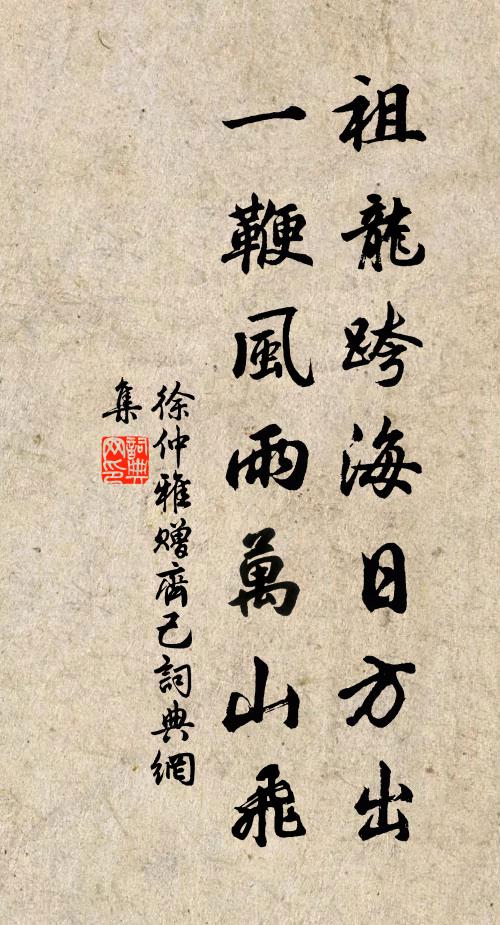 祖龍跨海日方出
一鞭風雨萬山飛
徐仲雅贈齊己詞典網
集
詞典
网印